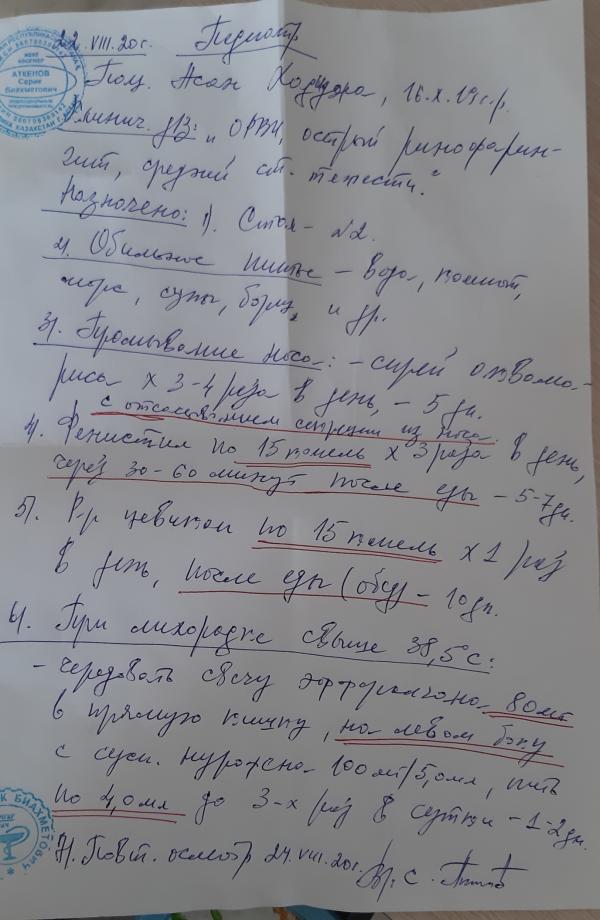 22.VIII.20г. Педиатр
АТКЕНОВ
Серик
Биахметович
Пац. Асан, 16.X.19 г.р.
Клинич. ДЗ: "ОРВИ, острый ринофарин-
гит, средней ст. тяжести."
Назначено: 1). Стол - №2.
2). Обильное питье - вода, компот,
морс, супы, борщ, и др.
3). Промывание носа: - спрей аквама-
риса х 3-4 раза в день, - 5 дн.
с отсасыванием секреции из носа.
4). Фенистил по 15 капель х 3 раза в день,
через 30-60 минут после еды - 5-7 дн.
5). Р-р по 15 капель х 1 раз
в день, после еды (обед) - 10 дн.
6). При лихорадке свыше 38,5°C:
- чередовать свечу эффералгана 80мг
в прямую кишку, на левом боку
с сусп. нурофена 100мг/5,0мл, пить
по 4,0мл до 3-х раз в сутки - 1-2 дн.
7). Повт. осмотр 24.VIII.20г. Вр.